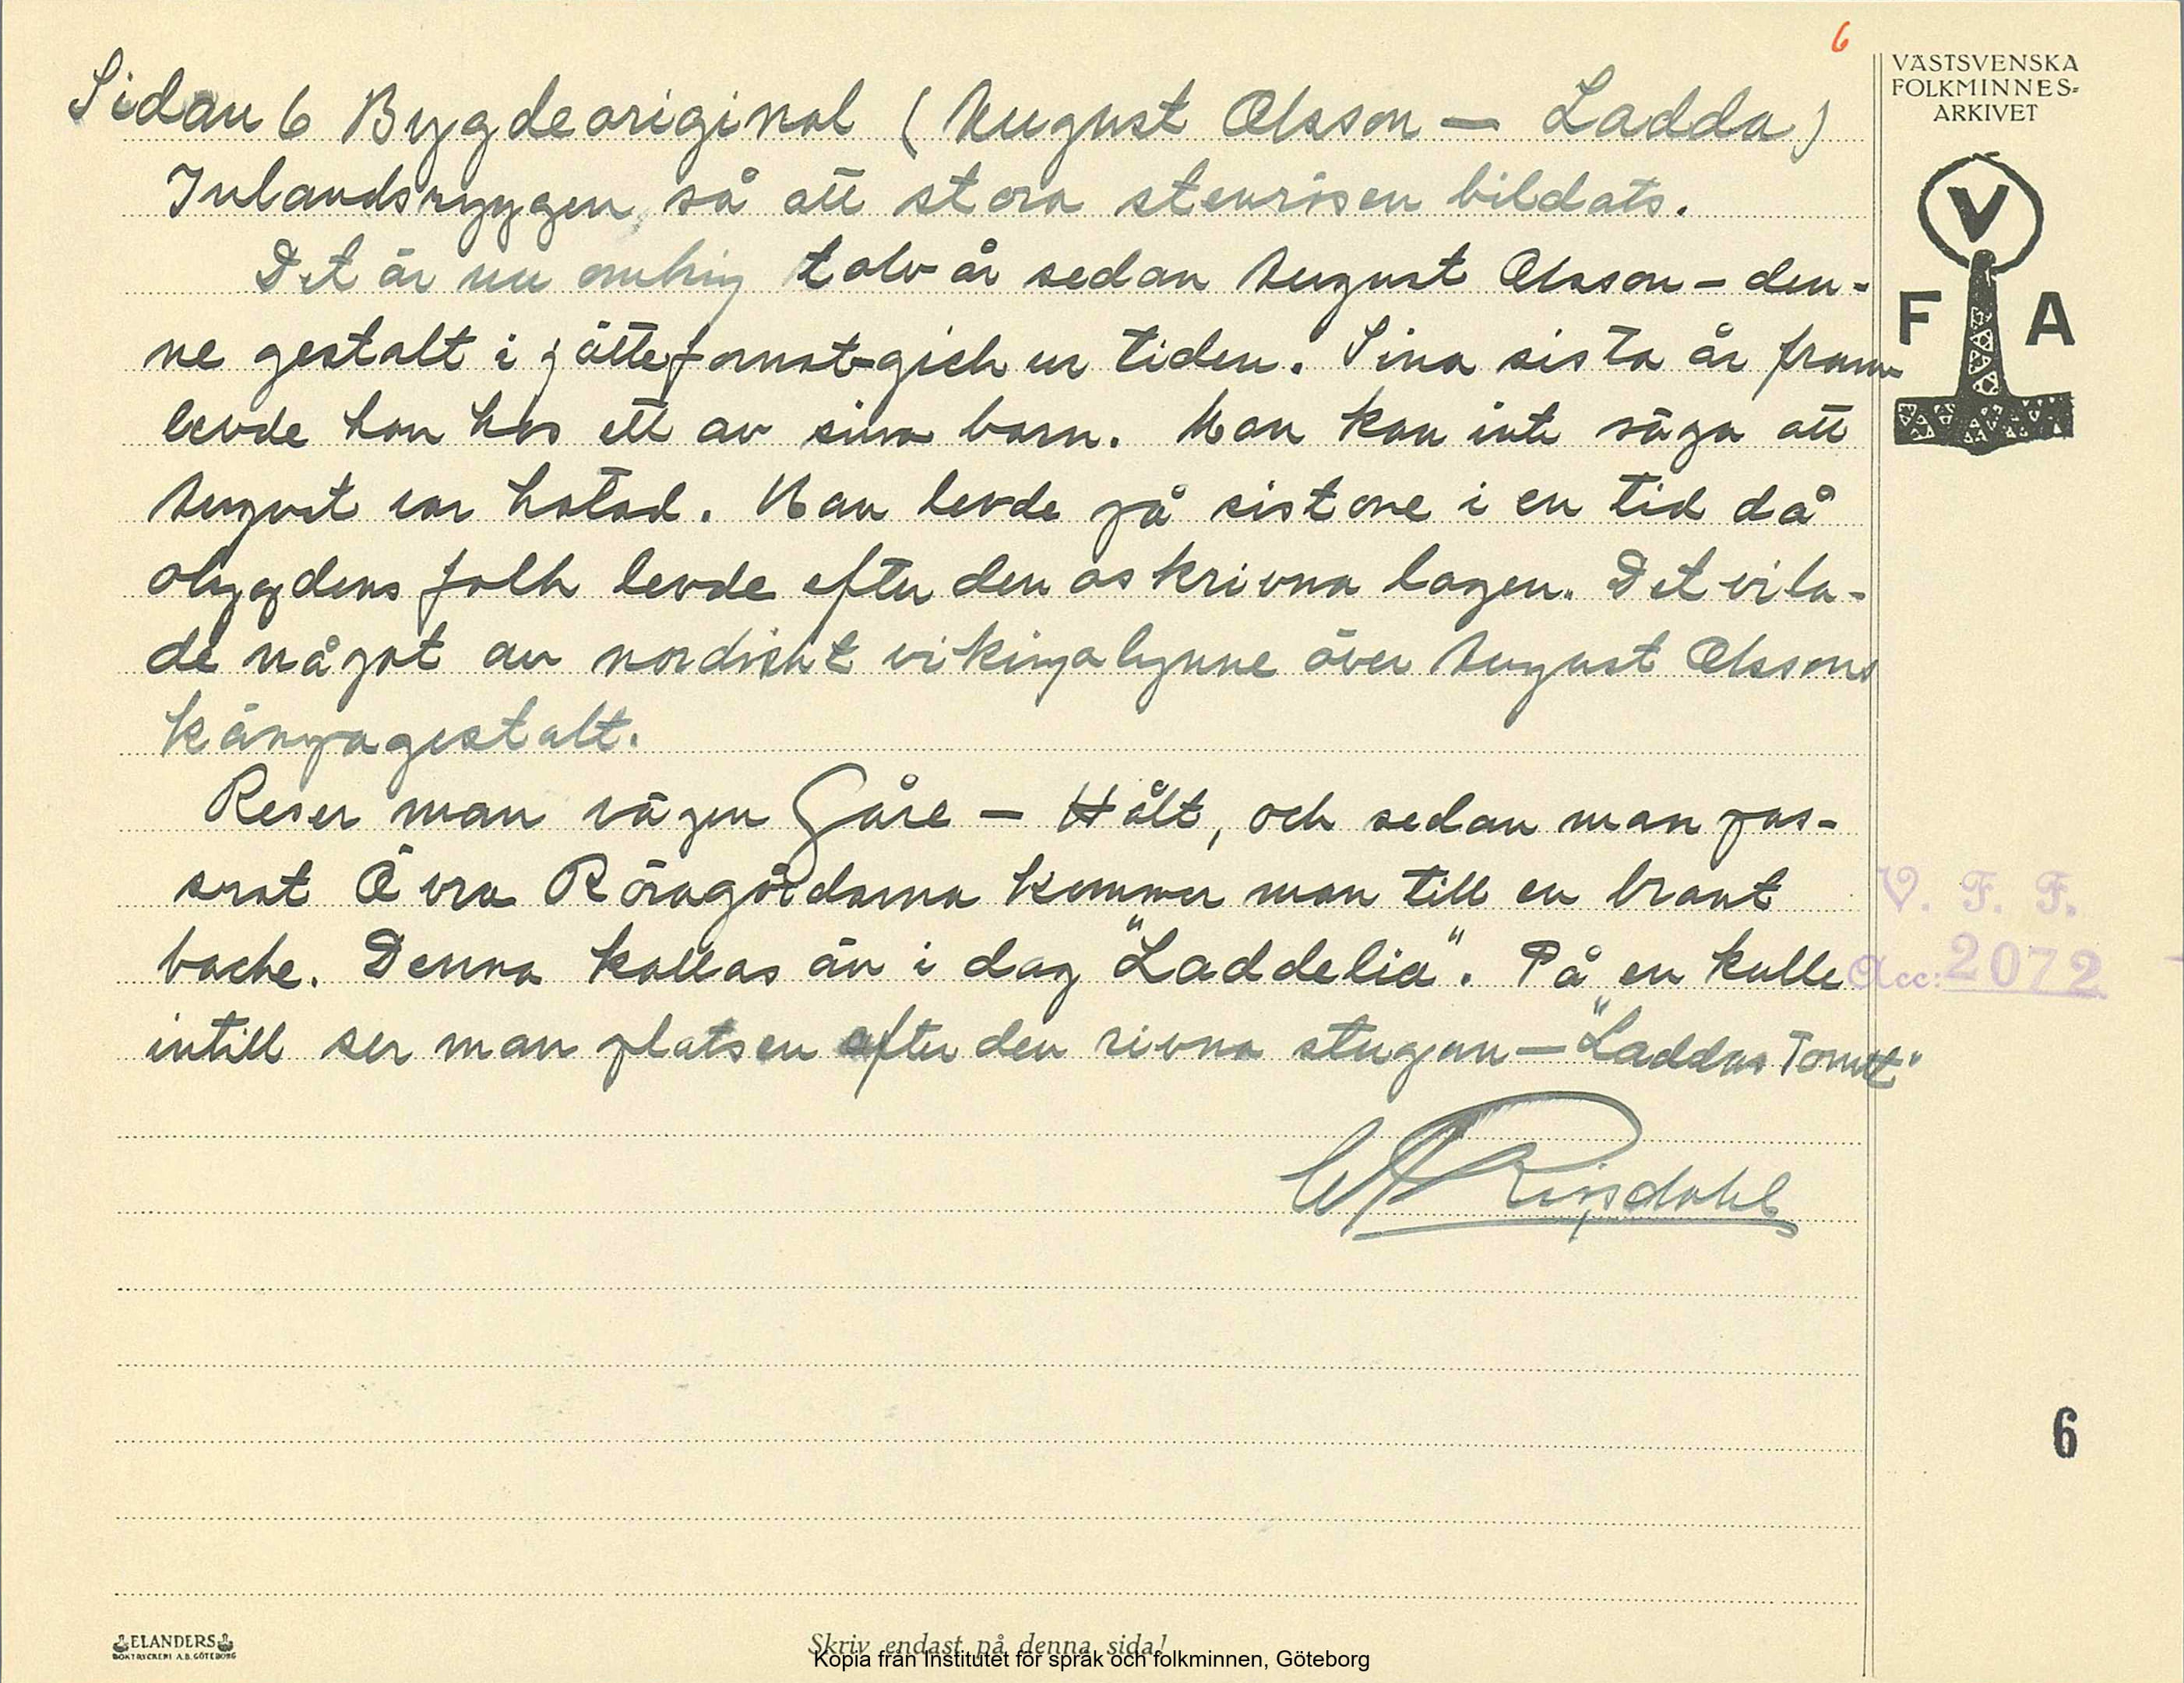 6
Sidan 6 Bygdeoriginal (August Olsson — Ladda)
VÄSTSVENSKA
FOLKMINNES-
ARKIVET
V
F A
Inlandsryggen, så att stora stenrösen bildats.
Det är nu omkring tolv år sedan August Olsson – den-
ne gestalt i jätteformat gick ur tiden. Sina sista år fram
levde han hos ett av sina barn. Man kan inte säga att
August var hatad. Han levde på sistone i en tid då
obygdens folk levde efter den oskrivna lagen. Det vila-
de något av nordiskt vikingalynne över August Olssons
kämpagestalt.
Reser man vägen Gåre — Hålt, och sedan man pas-
serat Övra Röragårdarna kommer man till en brant
backe. Denna kallas än i dag "Laddelia". På en kulle
intill ser man platsen efter den rivna stugan — "Laddas Tomt"
V. F. F.
Acc: 2072
6
ELANDERS
BOKTRYCKERI A.B. GÖTEBORG
Skriv endast på denna sida!
Kopia från Institutet för språk och folkminnen, Göteborg